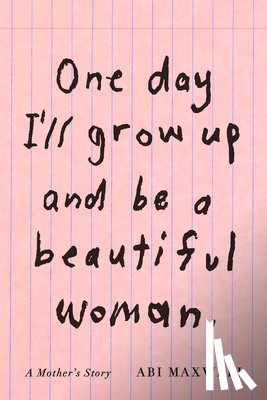 One day
I'll grow up
and be a
beautiful
woman.
A Mother's Story ABI